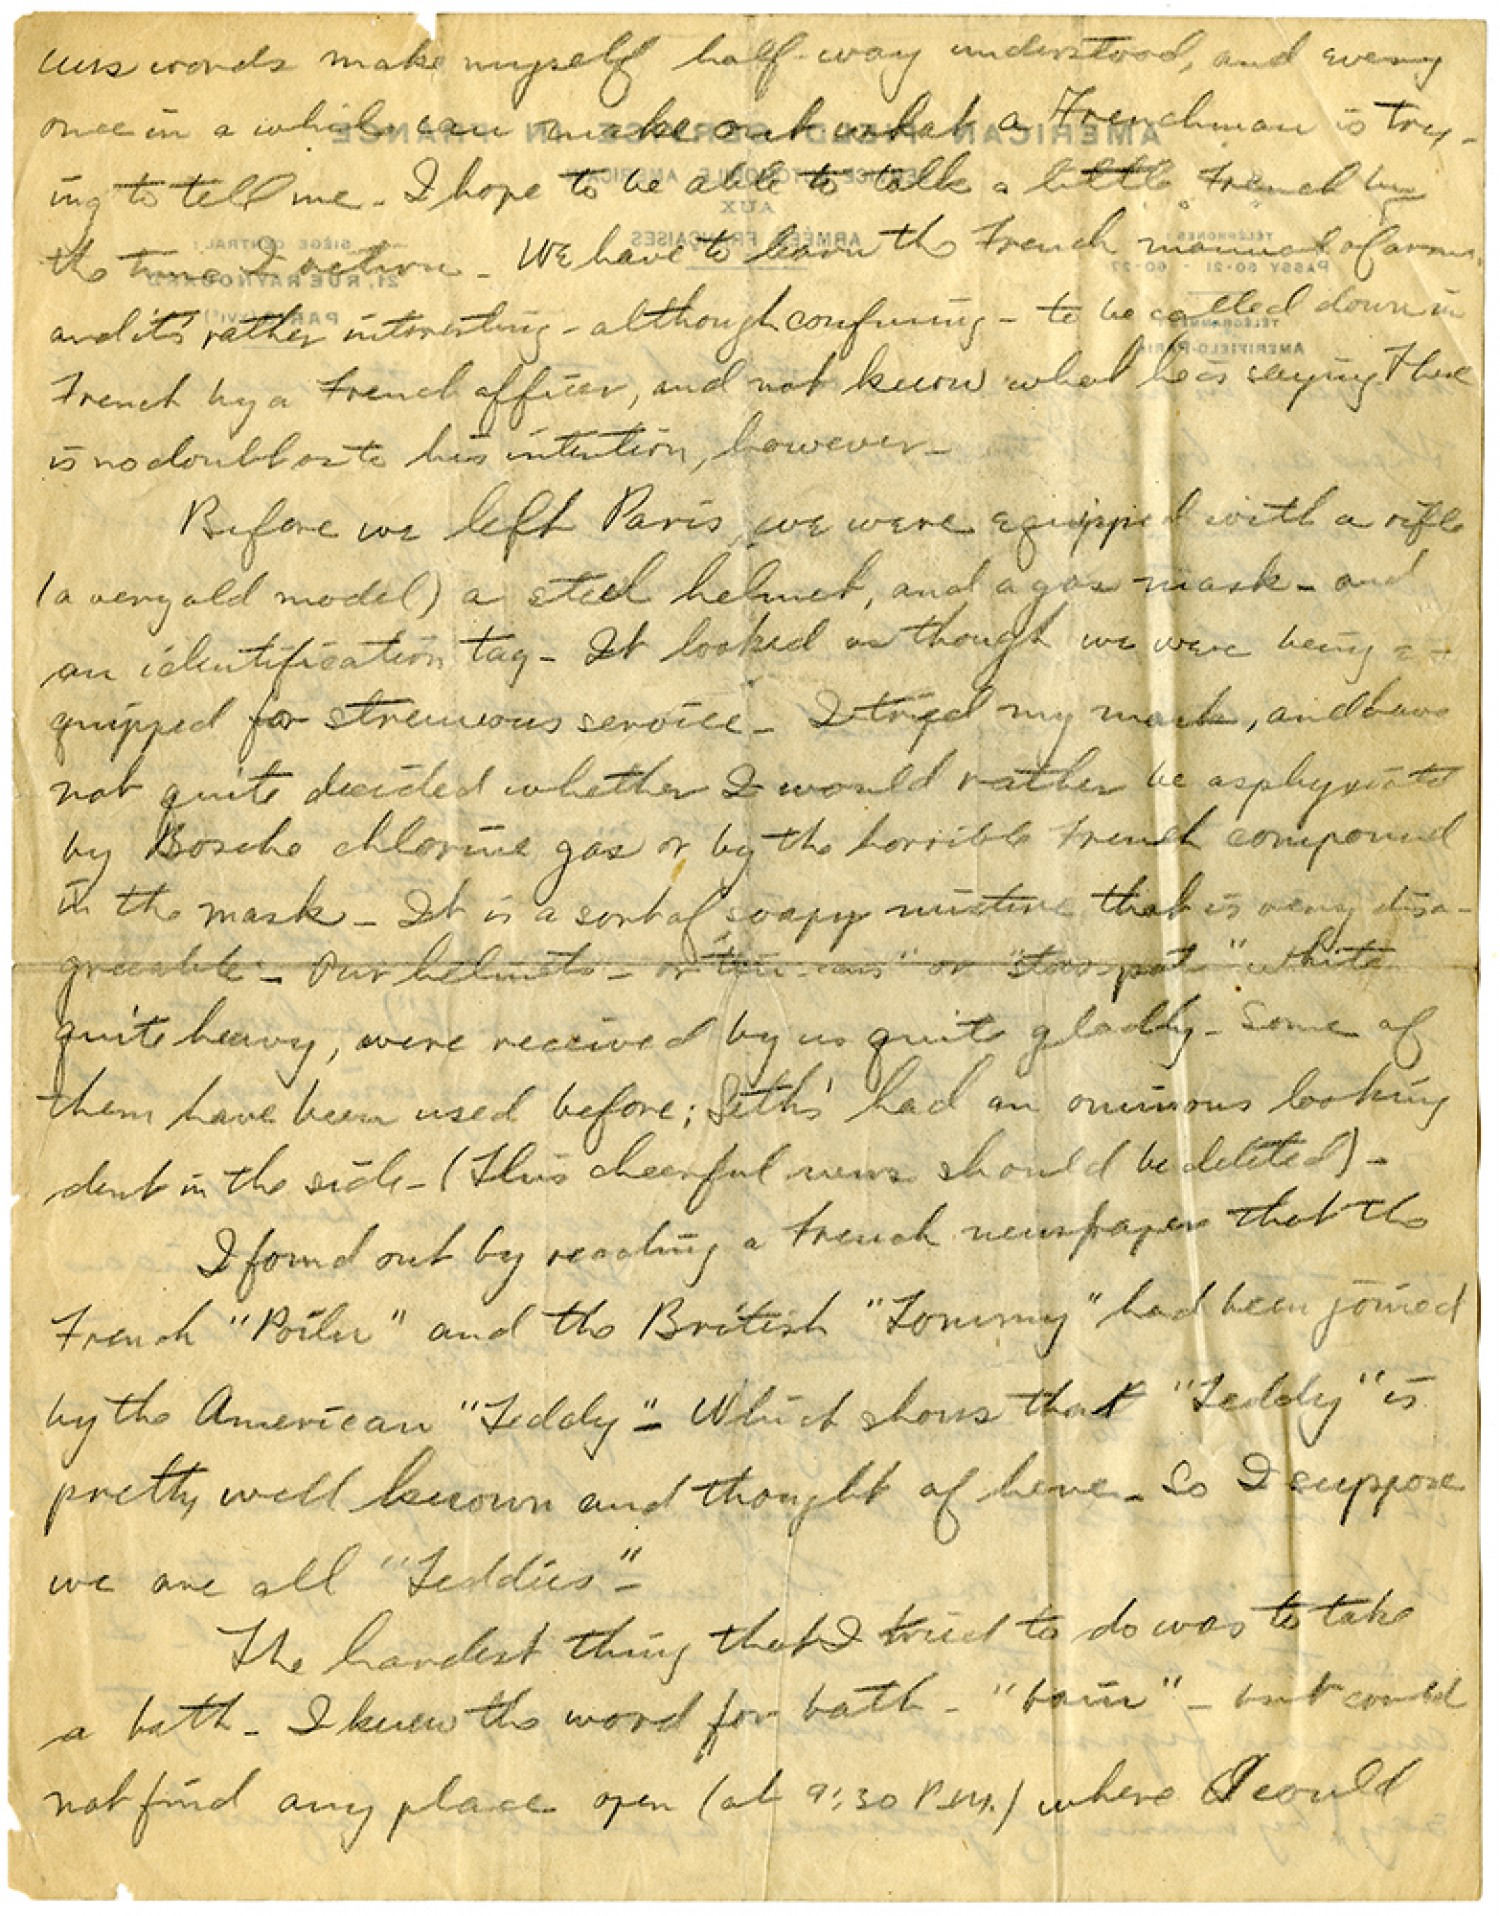 words make myself half-way understood, and every
once in a while can make out what a Frenchman is try-
ing to tell me - I hope to be able to talk a little French by
the time I return - We have to learn the French manual of arms,
and it's rather interesting - although confusing - to be called down in
French by a French officer, and not know what he is saying There
is no doubt as to his intention, however -
Before we left Paris, we were equipped with a rifle
(a very old model) a steel helmet, and a gas mask - and
an identification tag - It looked as though we were being e-
quipped for strenuous service - I tried my mask, and have
not quite decided whether I would rather be asphyxiated
by Bosche chlorine gas or by the horrible French compound
in the mask - It is a sort of soapy mixture that is very disa-
greeable - Our helmets - or "tin-cans" or "stewpots" while
quite heavy, were received by us quite gladly - Some of
them have been used before; Seth's had an ominous looking
dent in the side - (This cheerful news should be deleted) -
I found out by reading a French newspaper that the
French "Poilu" and the British "Tommy" had been joined
by the American "Teddy" - Which shows that "Teddy" is
pretty well known and thought of here - So I suppose
we are all "Teddies" -
The hardest thing that I tried to do was to take
a bath - I knew the word for bath - "bain" - but could
not find any place open (at 9:30 P.M.) where I could
AMERICAN FIELD SERVICE IN FRANCE
SERVICE AUTOMOBILE AMÉRICAIN
AUX
ARMÉES FRANÇAISES
SIÈGE CENTRAL:
21, RUE RAYNOUARD
TÉLÉPHONES:
PASSY 60-21 - 60-27
TÉLÉGRAMMES:
AMERIFIELD-PARIS